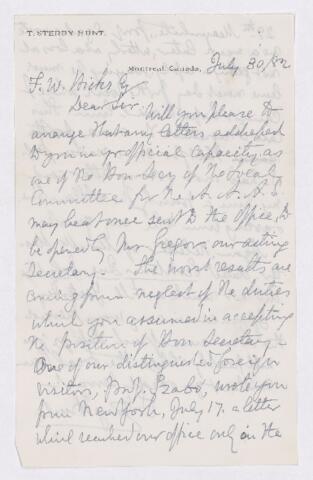 T. STERRY HUNT.
Montreal, Canada, July 30, 82
F. W. Hicks Esq
Dear Sir Will you please to
arrange that any letters addressed
to you in yr official capacity, as
one of the Hon. Secy of the Local
Committee for the A. A. A. S.
may be at once sent to the office, to
be opened by Mr Gregor our acting
Secretary. The worst results are
coming from neglect of the duties
which you assumed in accepting
the position of Hon Secretary.
One of our distinguished foreign
visitors, Prof. Szabo, wrote you
from New York, July 17. a letter
which reached our office only on the